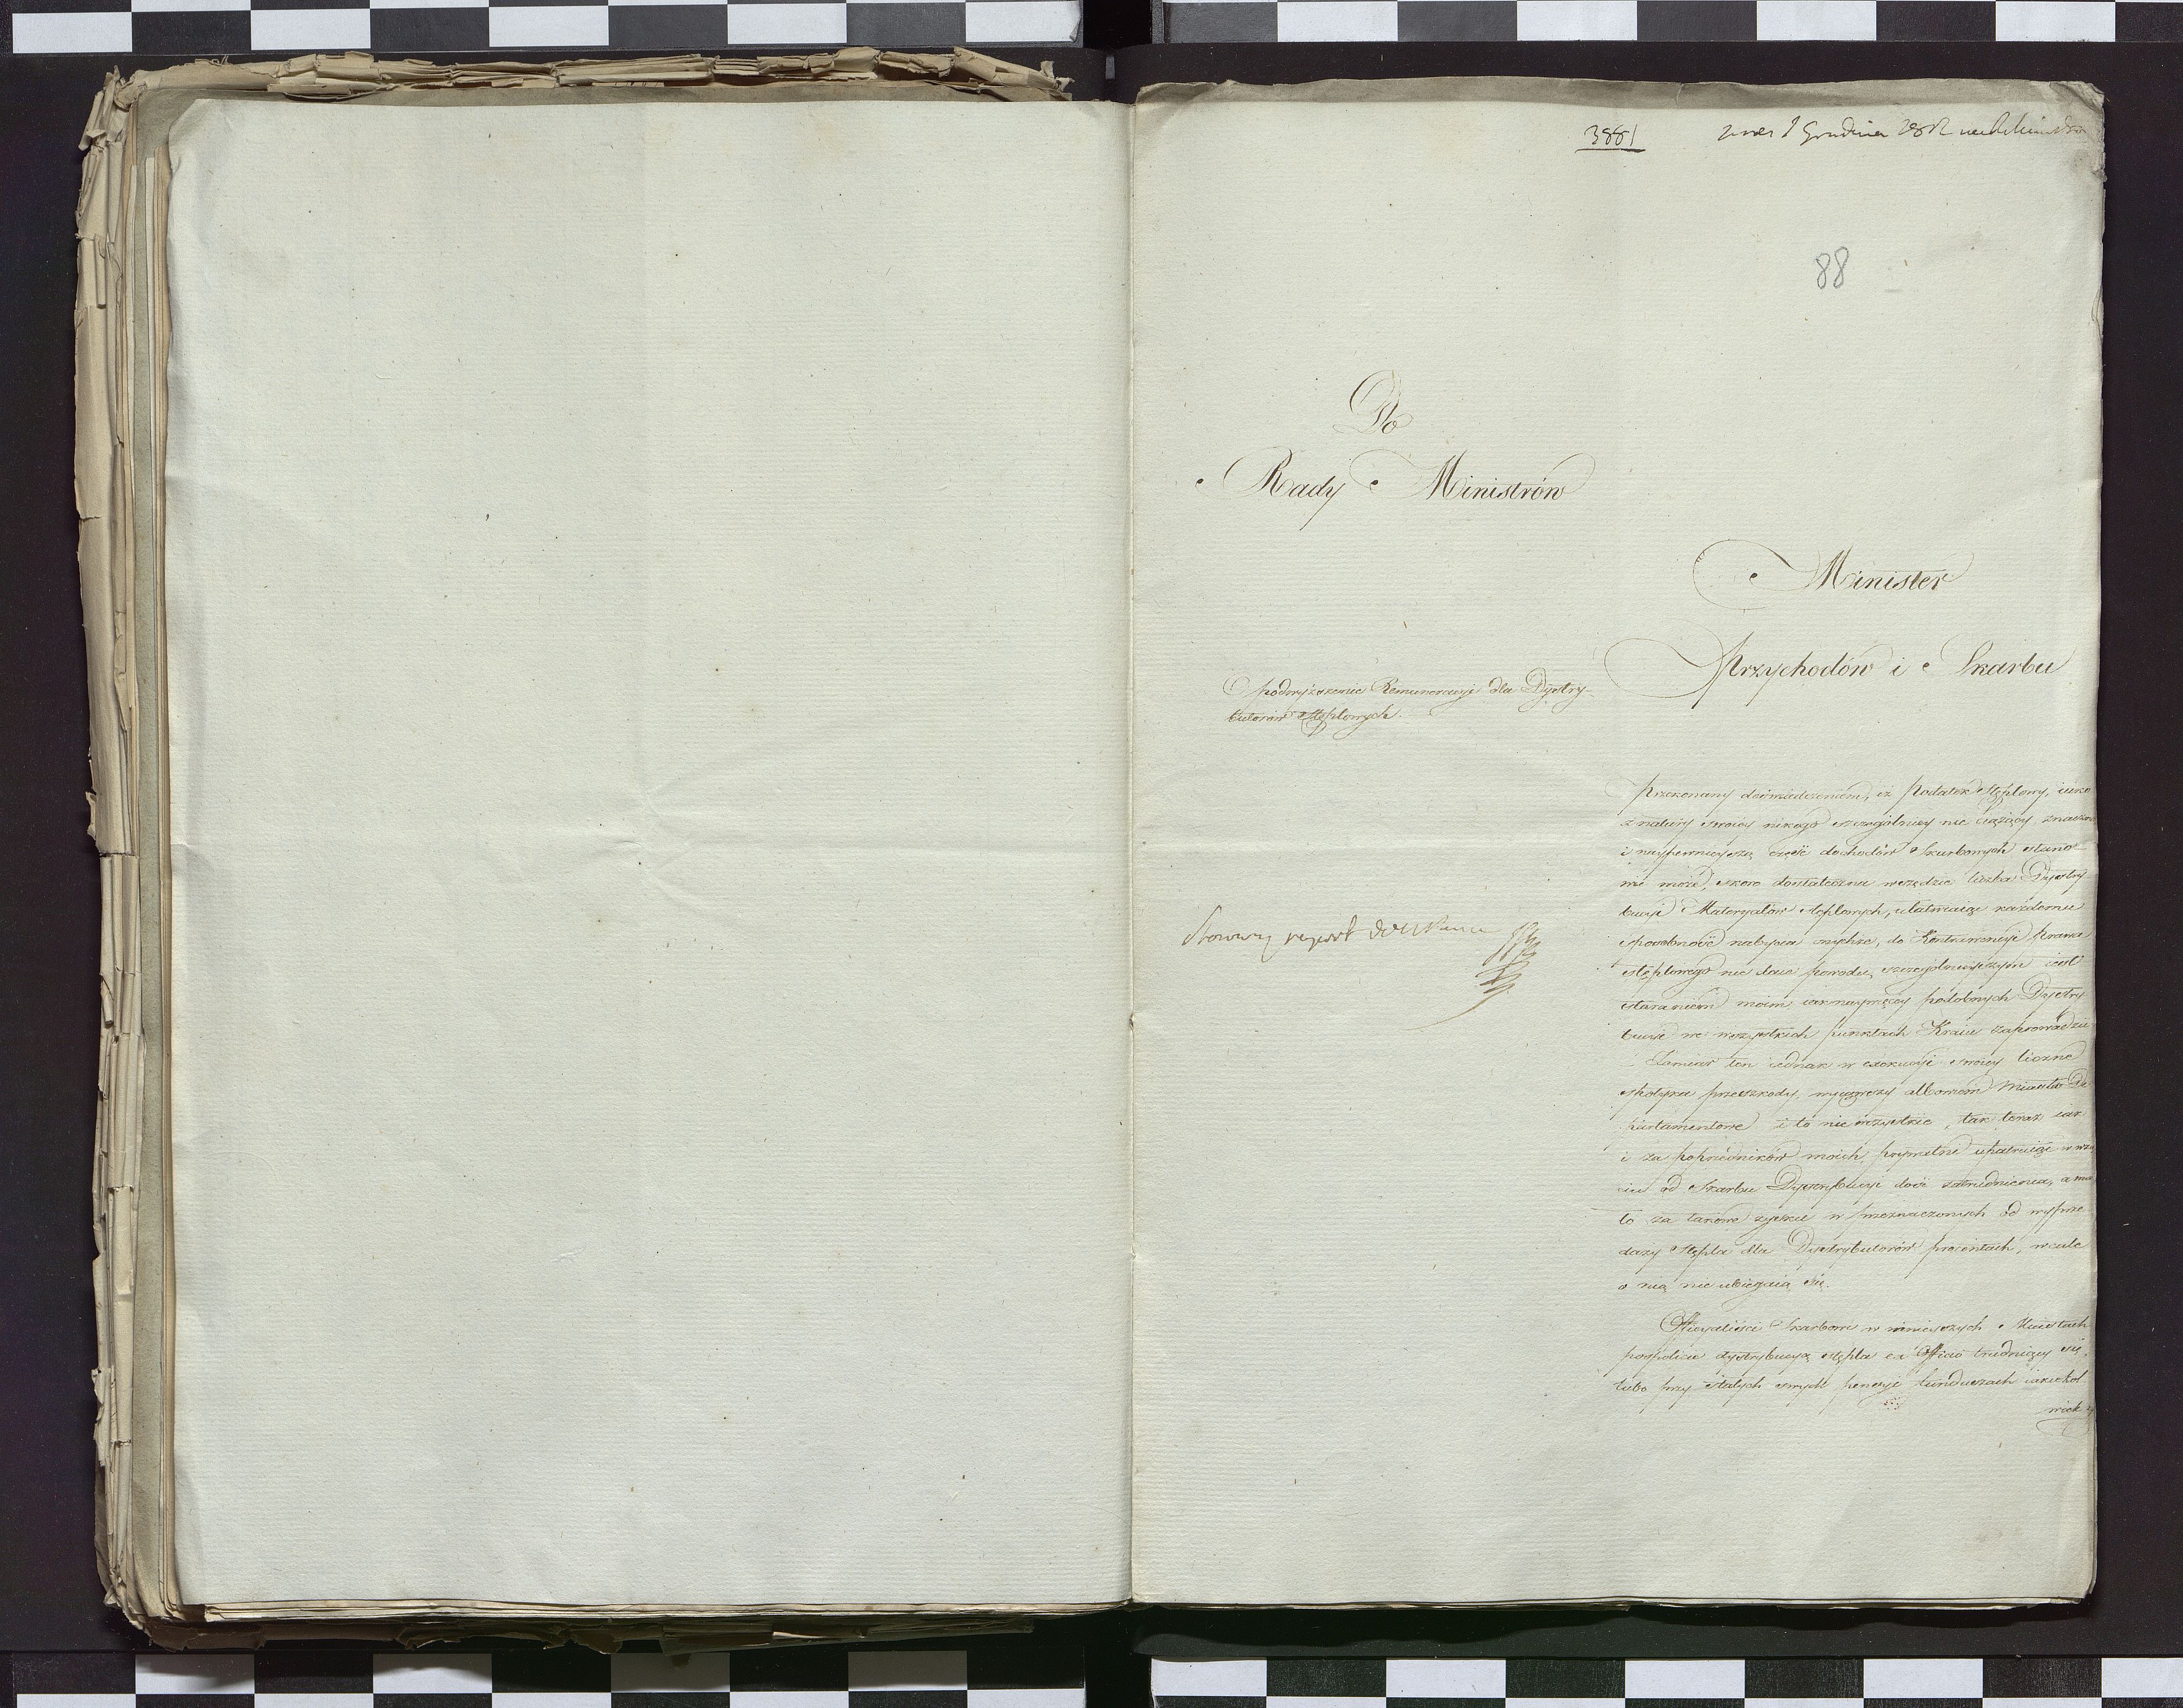 3881
Grudnia
88
Do
Rady Ministrów
Minister
Przychodów i Skarbu
Podwyższenie Remuneracyi dla Dystry-
butorów Stęplowych.
Stosowny raport do
Przekonany doświadczeniem, iż Podatek Stęplowy, iako
z natury swoiey nikogo szczególniey nie ciążący, znaczną
i naypewnieyszą część dochodów Skarbowych stano-
wić może, skoro dostateczna wszędzie liczba Dystry
bucyi Materyałów stęplowych, ułatwiaiąc każdemu
sposobność nabycia onychże, do Kontrawencyi Prawa
stęplowego nie daie powodu, szczególnieyszym iest
staraniem moim iak naywięcey podobnych Dystry-
bucyi we wszystkich punktach Kraiu zaprowadzić
Zamiar ten iednak w exekucyi swoiey liczne
spotyka przeszkody, wyiąwszy albowiem Miasta De
partamentowe i to nie wszystkie, tak teraz iak
i za poprzedników moich, prywatne upatruiąc w wzię
ciu od Skarbu Dystrybucyi dość zatrudnienia, a ma
ło za takowe zysku w przeznaczonych od wyprze
daży stępla dla Dystrybutorów procentach, wcale
o nią nie ubiegaią się.
Officyaliści Skarbowi w mnieyszych Miastach
pospolicie dystrybucyą stępla ex Officio trudniący się,
lubo przy stałych swych pensyi funduszach iakiekol
wiek